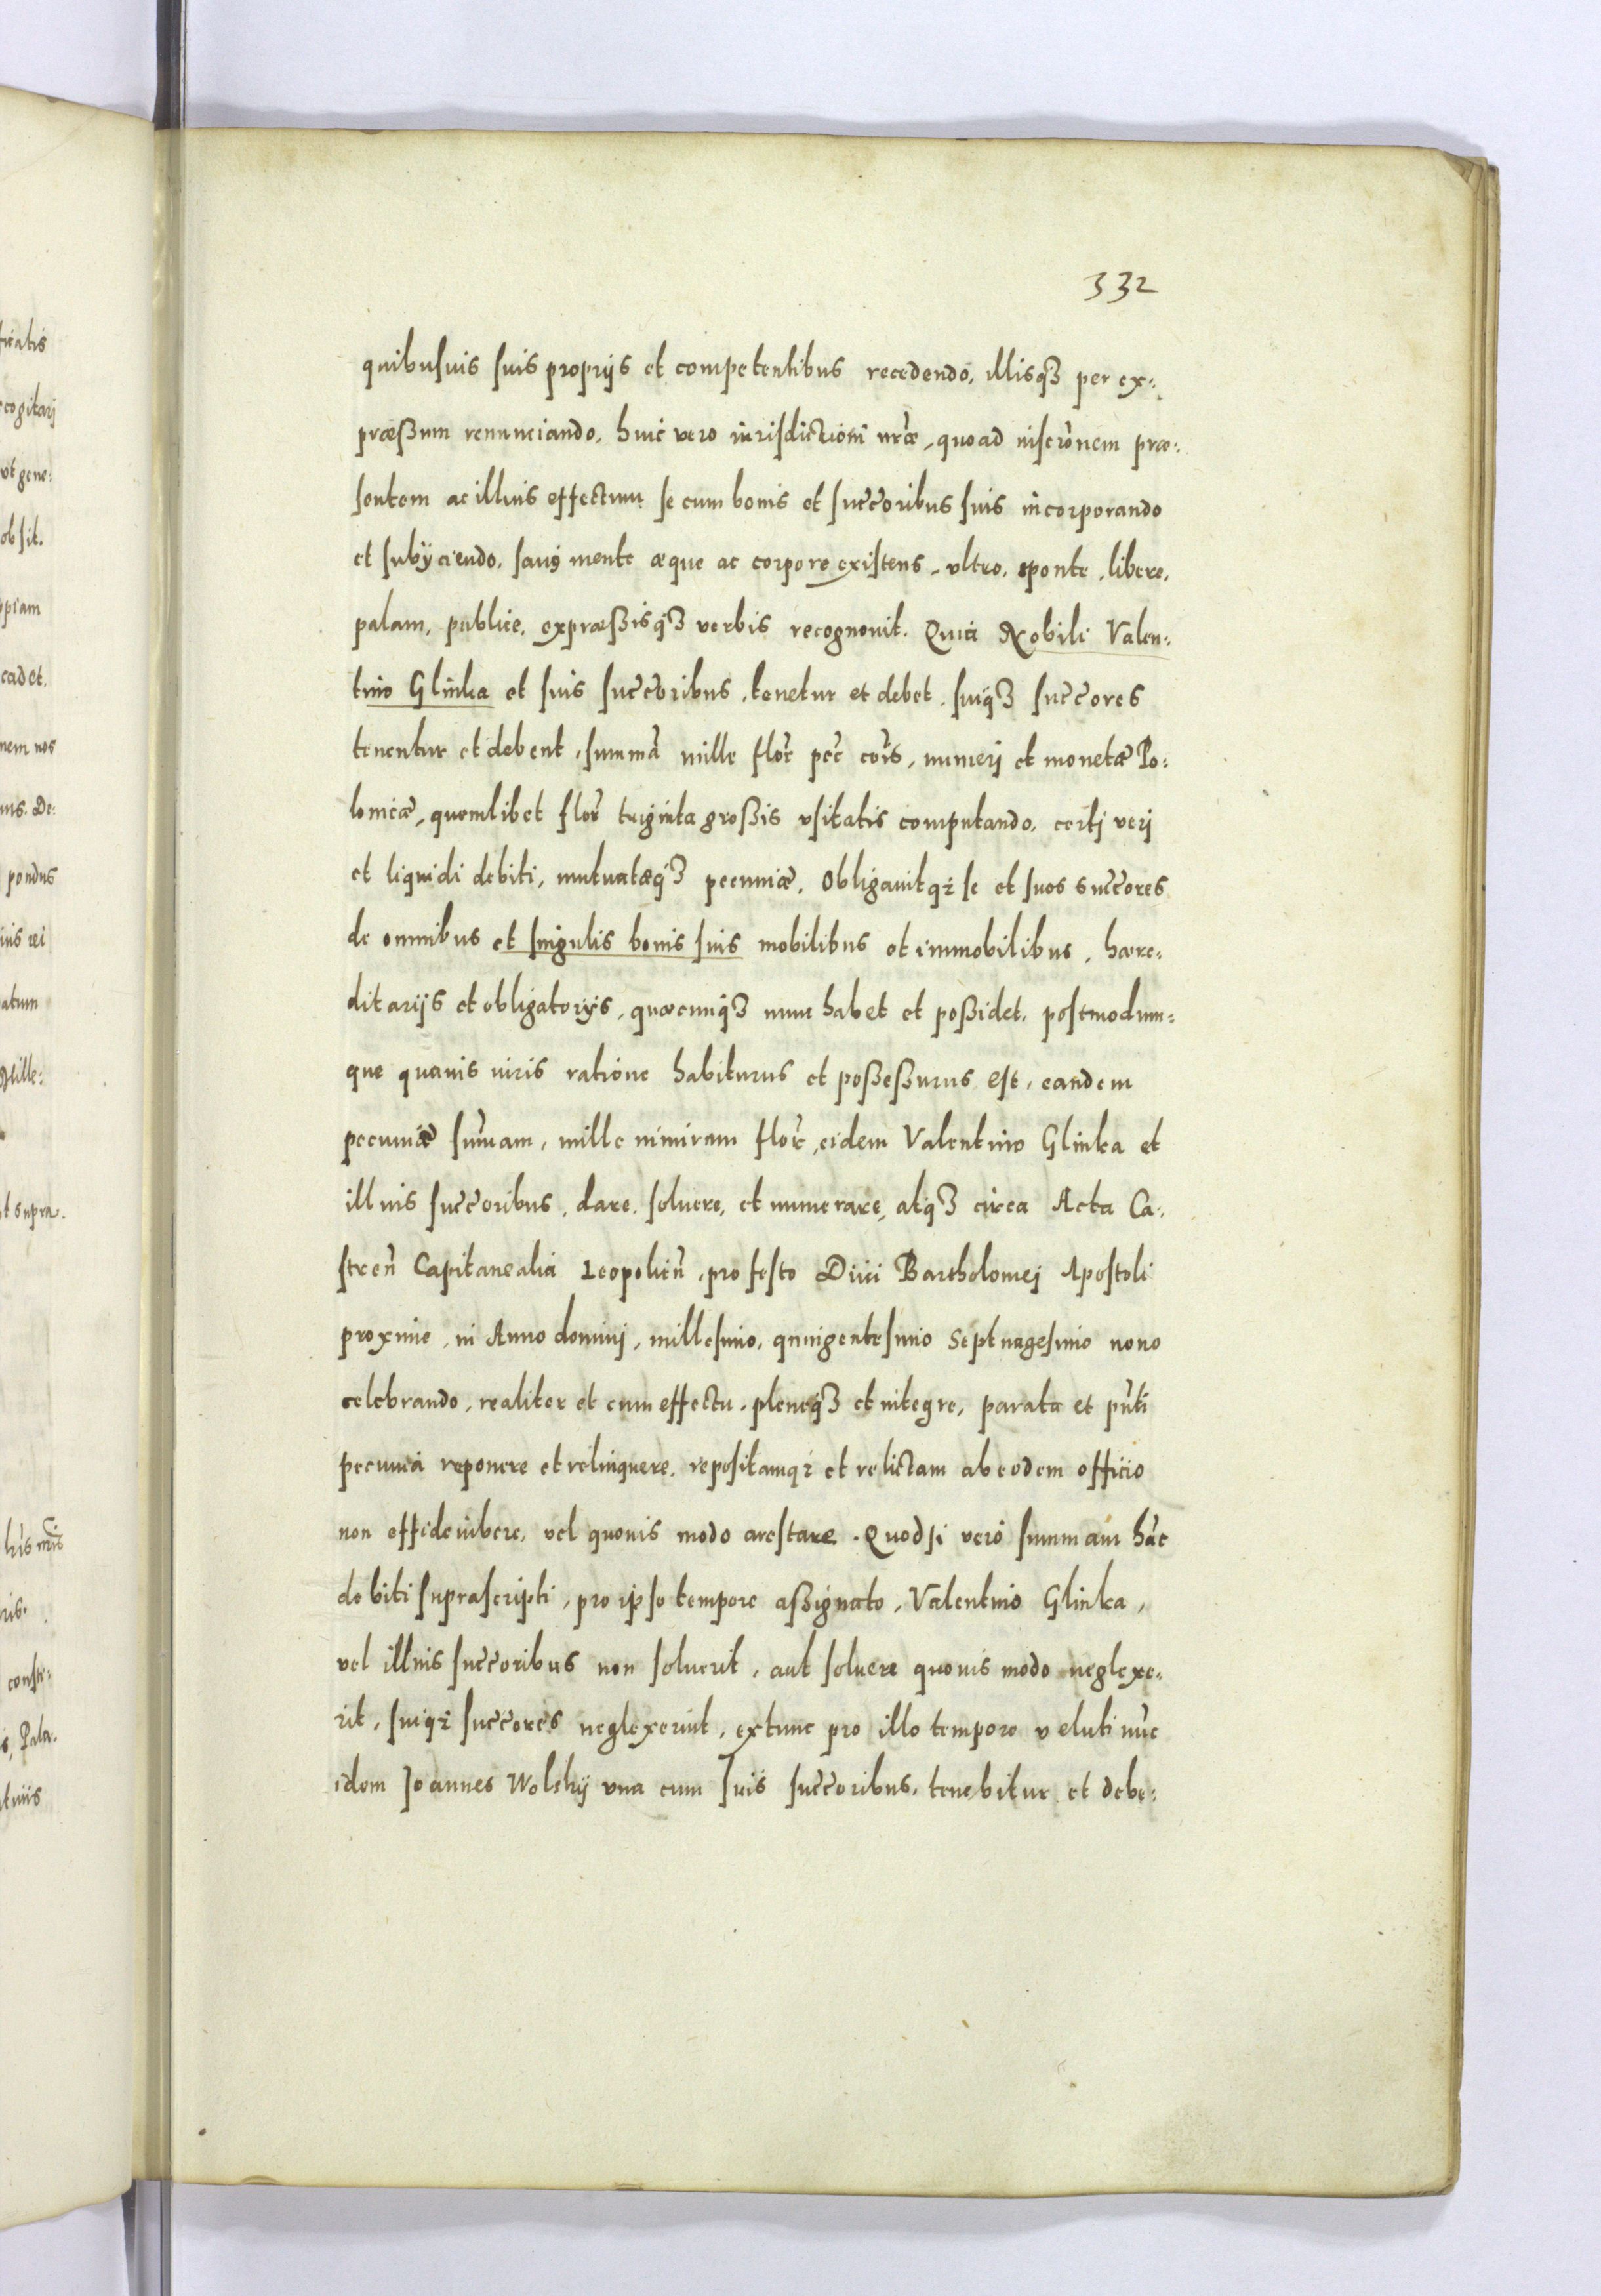 332
quibusuis suis proprijs et competentibus recedendo, illisq3 per ex:
præßum renunciando, huic vero iurisdictioni nr̃æ, quoad inscr̃onem præ:
sentem ac illius effectum se cum bonis et succ̃oribus suis incorporando
et subÿciendo, sanus mente æque ac corpore existens, vltro, sponte, libere,
palam, publice, expræßisq3 verbis recognouit. Quia Nobili Valen:
tino Glinka et suis succ̃oribus, tenetur et debet, suiq3 succ̃ores
tenentur et debent, summã mille flor̃ pec̃ cõis, numerj et monetæ Po:
lonicæ, quemlibet flor̃ triginta großis vsitatis computando, certj verj
et liquidi debiti, mutuatæq3 pecuniæ. Obligauitq3 se et suos succ̃ores
de omnibus et singulis bonis suis mobilibus et immobilibus, hære:
ditarijs et obligatorijs, quæcunq3 nunc habet et poßidet, postmodum:
que quauis iuris ratione habiturus et poßeßurus est, eandem
pecuniæ sum̃am, mille nimirum flor̃, eidem Valentino Glinka et
illius succ̃oribus, dare, soluere, et numerare, atq3 circa Acta Ca:
streñ Capitanealia Leopolieñ, pro festo Diui Bartholomej Apostoli
proxime, in Anno dominj, millesimo, quingentesimo Septuagesimo nono
celebrando, realiter et cum effectu, pleneq3 et integre, parata et pñti
pecunia reponere et relinquere, repositamq3 et relictam ab eodem officio
non effideiubere, vel quouis modo arestare. Quodsi vero summam hãc
debiti suprascripti, pro ipso tempore aßignato, Valentino Glinka,
vel illius succ̃oribus non soluerit, aut soluere quouis modo neglexe:
rit, suiq3 succ̃ores neglexerint, extunc pro illo tempore veluti nũc
idem Joannes Wolskÿ vna cum suis succ̃oribus, tenebitur et debe: